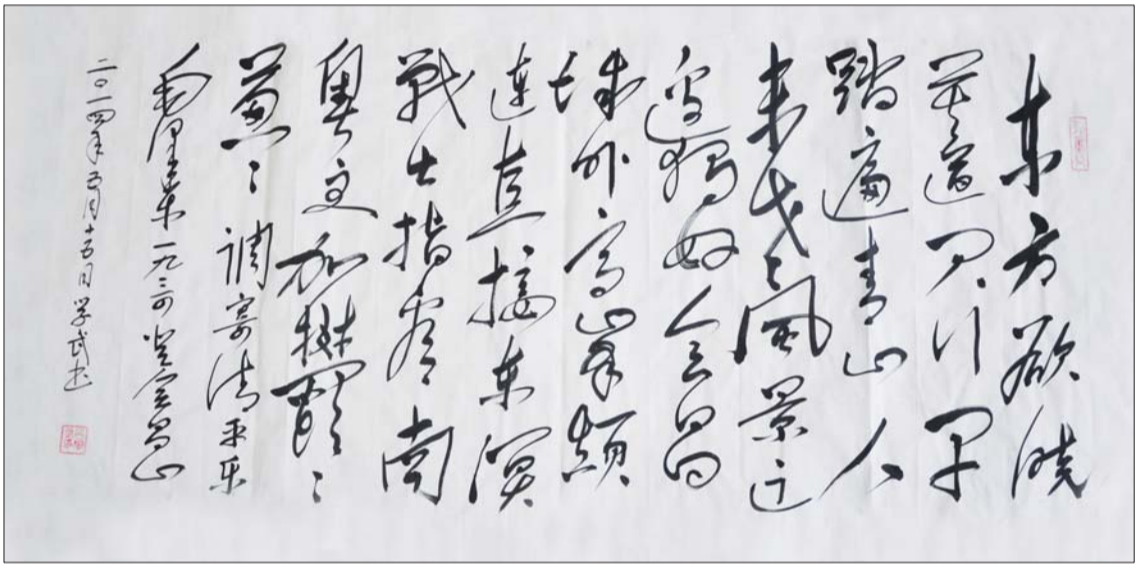 東方欲晓
莫道君行早
踏遍青山人
未老風景这
边獨好会昌
城外高峯颠
连直接东溟
戰士指看南
粤更加鬱々
葱々 调寄清平乐
毛泽东一九三四登会昌山
二〇一四年五月十五日学武书